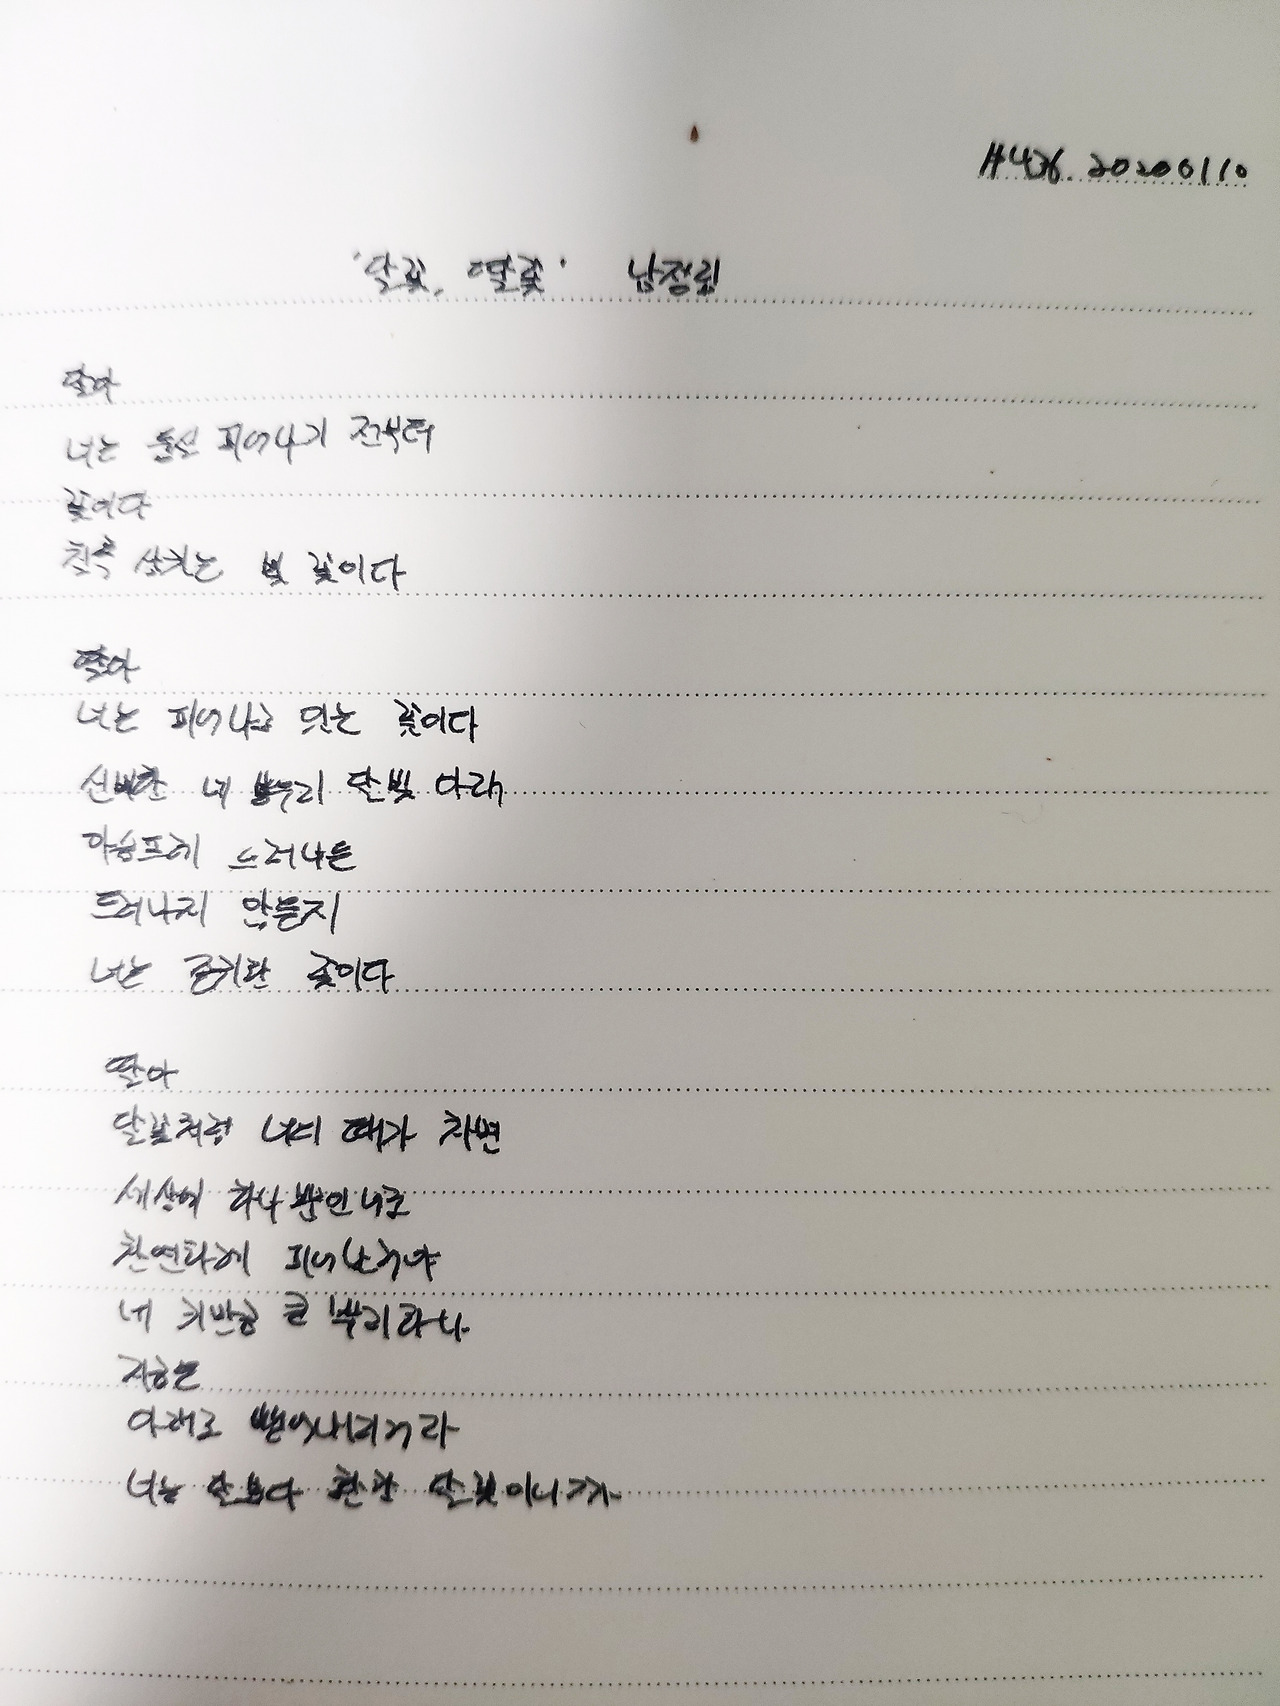 #426. 20200110
'달꽃, 딸꽃' 남정림
딸아
너는 눈뜨 피어나기 전부터
꽃이다
침묵 삼키는 빛 꽃이다
딸아
너는 피어나고 있는 꽃이다
신비한 네 봉우리 달빛 아래
아슴프레 드러나든
드러나지 않든지
너는 존귀한 꽃이다
딸아
달꽃처럼 너의 때가 차면
세상에 하나뿐인 너로
찬연하게 피어나거라
네 기반은 큰 뿌리라나
아래로 뻗어내리거라
너는 달보다 환한 달꽃이니까